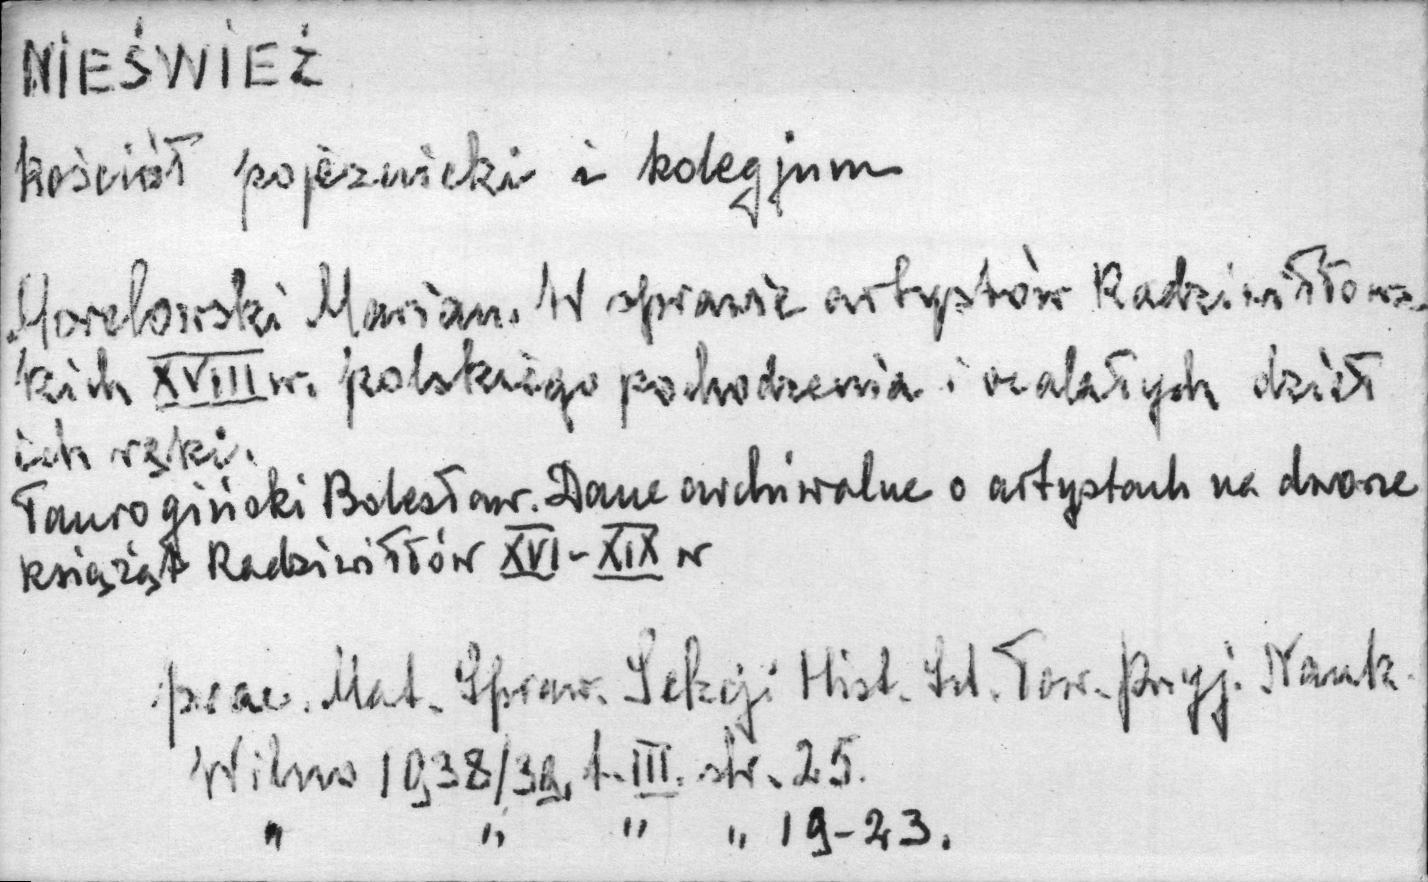 NIEŚWIEŻ
kościół pojezuicki i kolegjum
Morelowski Marian. W sprawie artystów Radziwiłłows-
kich XVIII w. polskiego pochodzenia i ocalałych dzieł
ich ręki.
Taurogiński Bolesław. Dane archiwalne o artystach na dworze
książąt Radziwiłłów XVI-XIX w
prac. Mat. Spraw. Sekcji Hist. Szt. Tow. Przyj. Nauk.
Wilno 1938/39, t. III. str. 25.
" " " " 19-23.